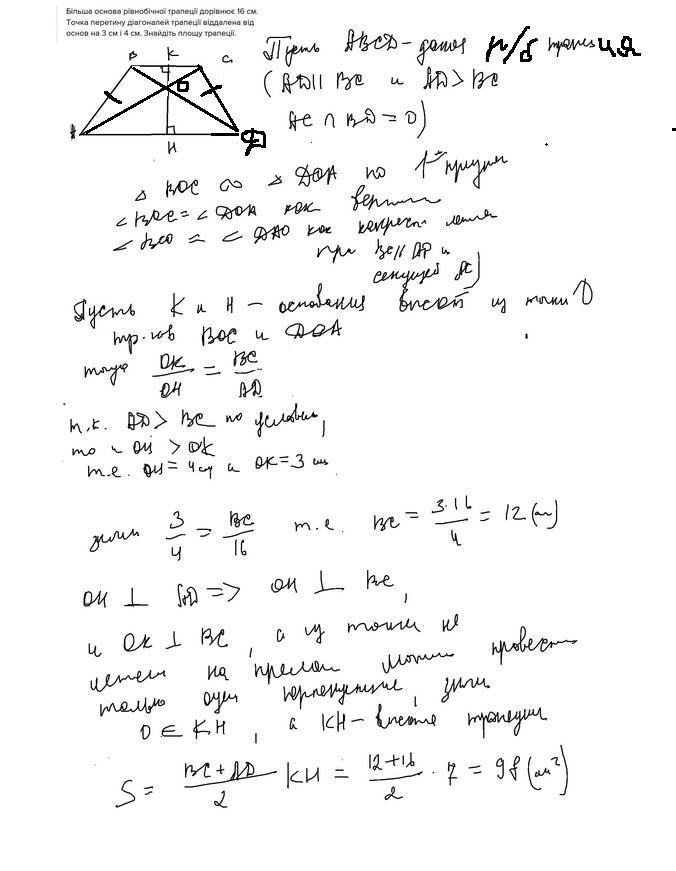 Більша основа рівнобічної трапеції дорівнює 16 см.
Точка перетину діагоналей трапеції віддалена від
основ на 3 см і 4 см. Знайдіть площу трапеції.
B K C
O
A H D
Пусть ABCD - данная р/б трапеция
(AD || BC и AD > BC
AC ∩ BD = O)
△ BOC ∞ △ DOA по 1
∠ BOC = ∠ DOA как верт
∠ BCO = ∠ DAO как накрест
при BC || AD и
секущей AC)
Пусть K и H - основания высот из точки O
тр-ков BOC и DOA
тогда OK/OH = BC/AD
т.к. AD > BC по условию,
то и OH > OK
т.е. OH = 4 см и OK = 3 см
значит 3/4 = BC/16 т.е. BC = 3·16/4 = 12 (см)
OH ⊥ AD => OH ⊥ BC,
и OK ⊥ BC, а из точки не
на прямой можно провести
только один перпендикуляр, значит
O ∈ KH, а KH - высота трапеции
S = BC + AD/2 KH = 12+16/2 · 7 = 98 (см²)